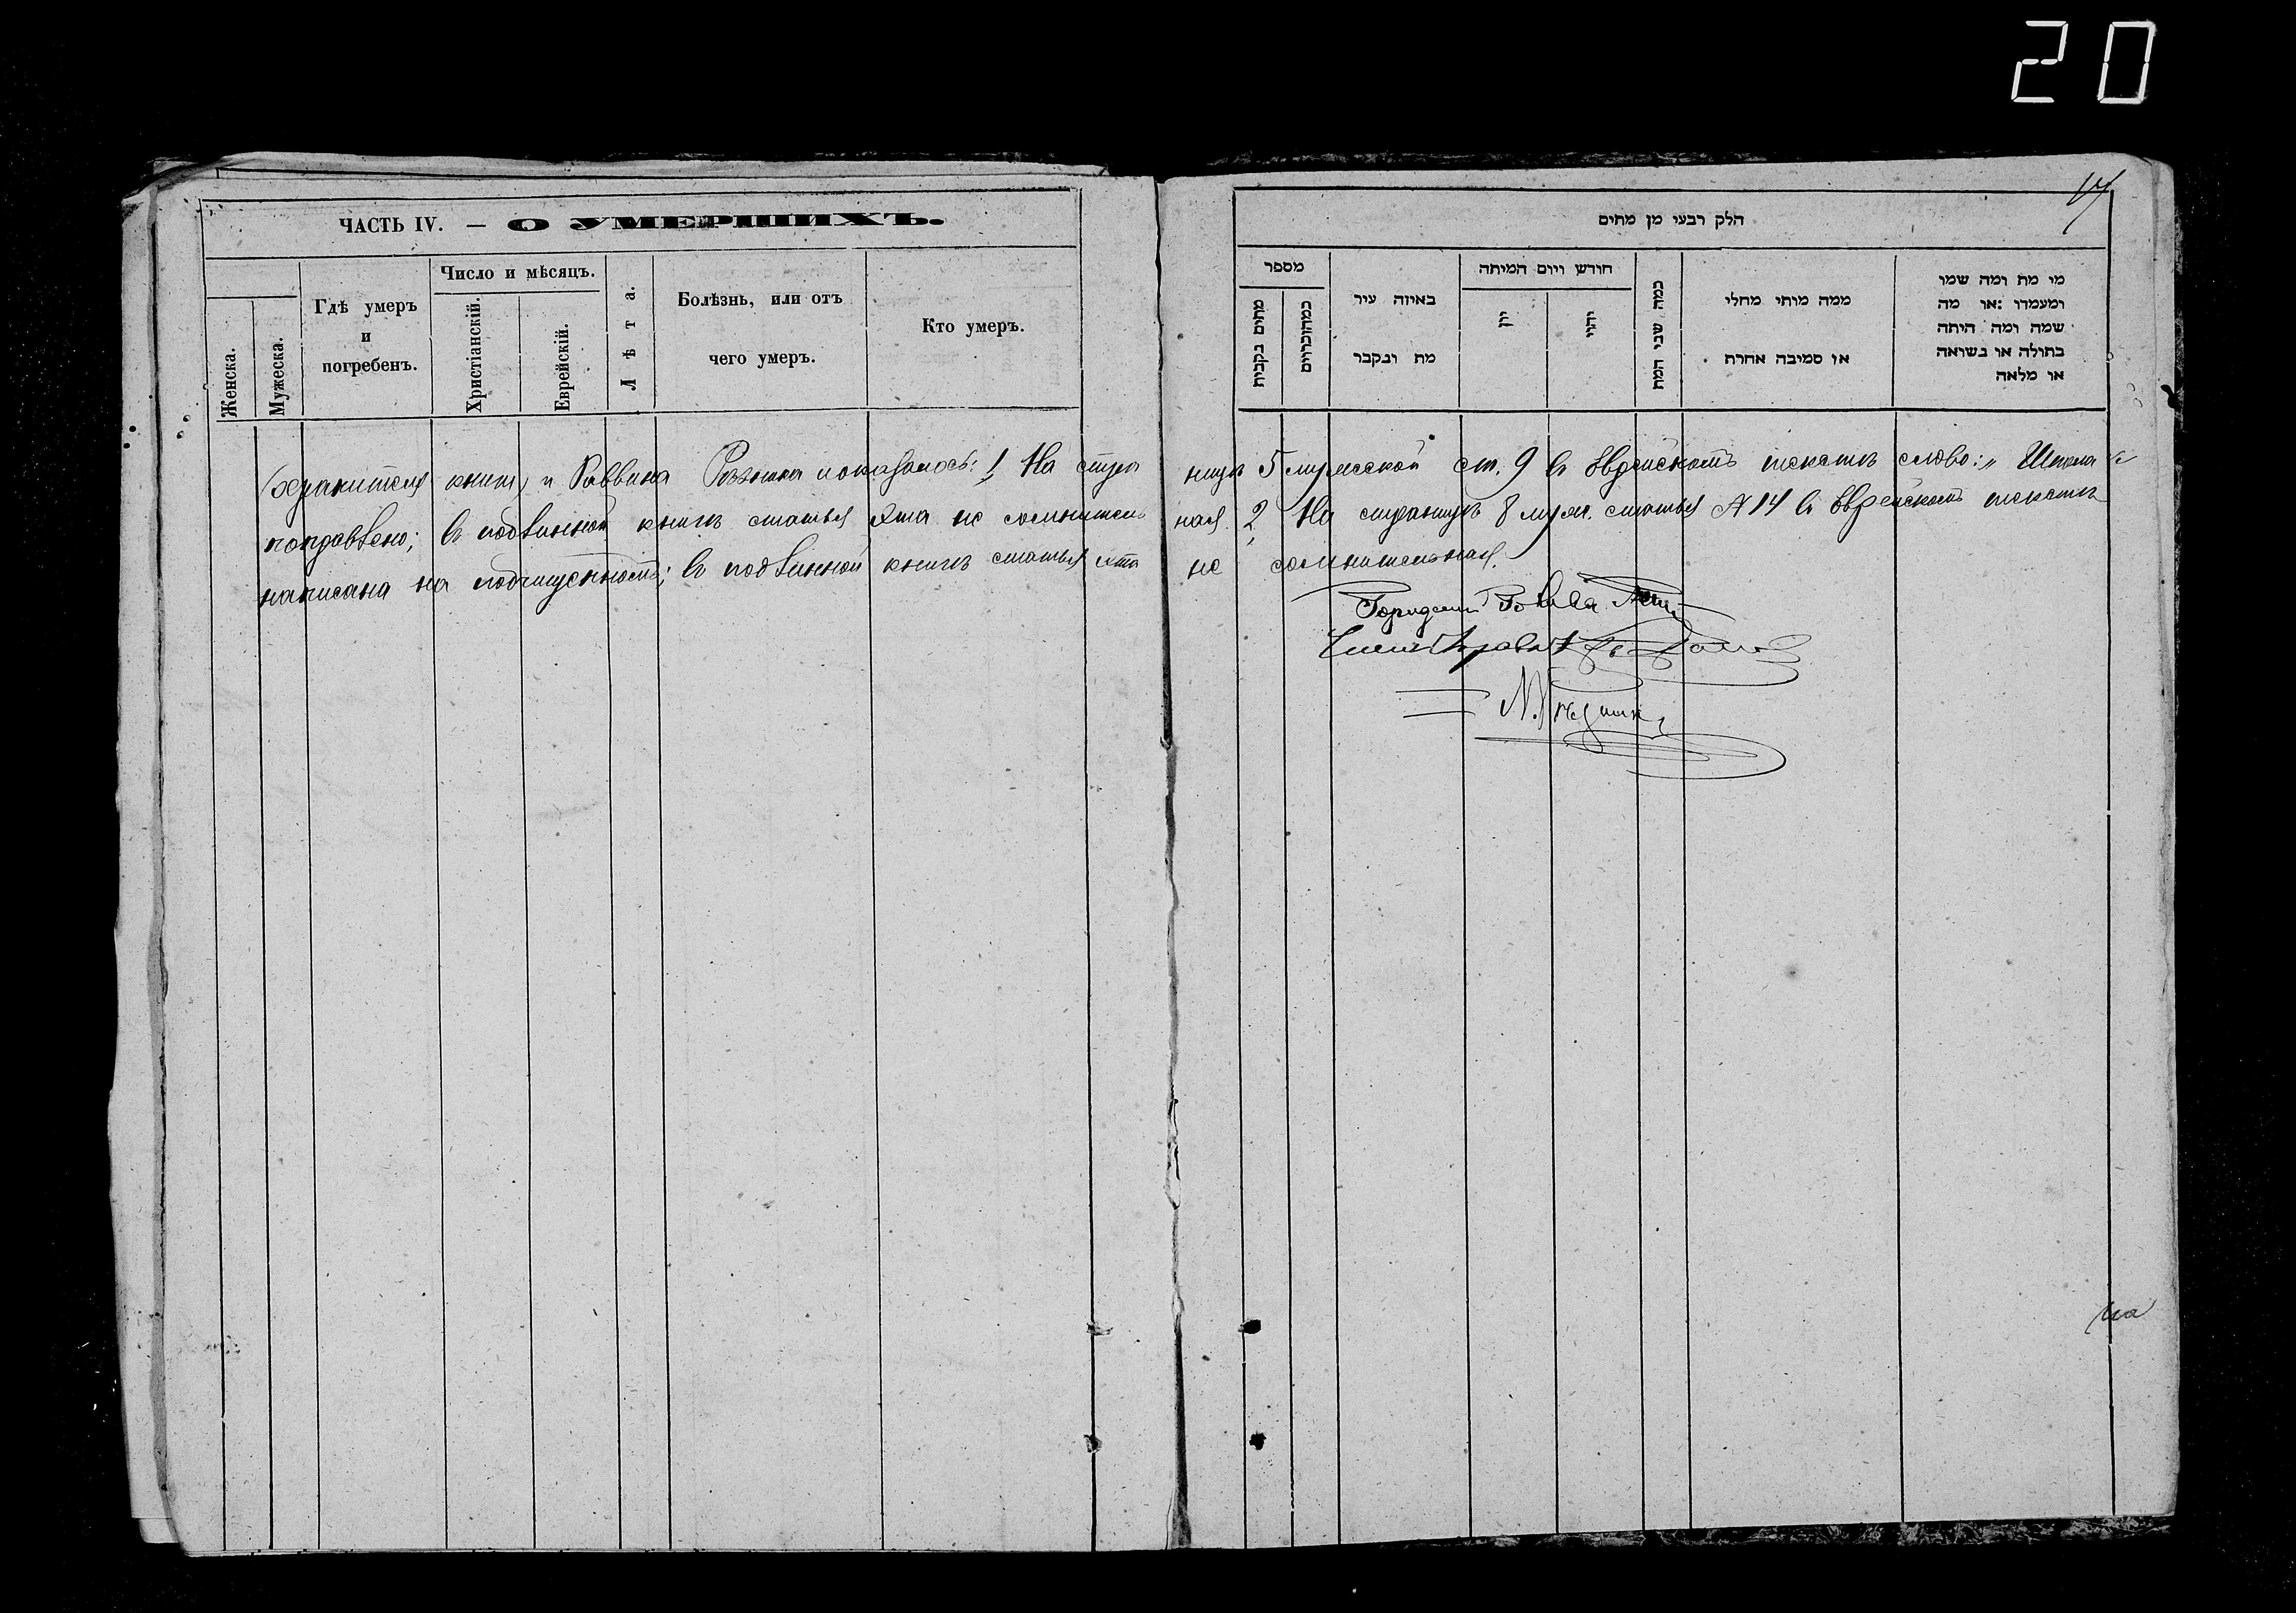 20
17
ЧАСТЬ IV. — О УМЕРШИХЪ.
Женска.
Мужеска.
Гдѣ умеръ
и
погребенъ.
Число и мѣсяцъ.
Христіанскій.
Еврейскій.
Лѣта.
Болѣзнь, или отъ
чего умеръ.
Кто умеръ.
חלק רבעי מן מתים
מספר
מתים נקבות
באיזה עיר
מת ונקבר
חודש ויום המיתה
יהודי
כמה שני המת
ממה מותי מחלי
או סמיבה אחרת
מי מת ומה שמו
ומעמדו :או מה
שמה ומה היתה
בתולה או נשואה
או מלאה
книг, и Раввина показалось: 1, На стра ницѣ 5 мужеской ст. 9 в Еврейскомъ текстѣ слово: „Школа"
поправлено; в подлинной книгѣ статья эта не сомнитель ная. 2, На страницѣ 8 муж. статья № 14 в Еврейскомъ текстѣ
написана на подчищенномъ; в подлинной книгѣ статья эта не сомнительная.
Городской
на